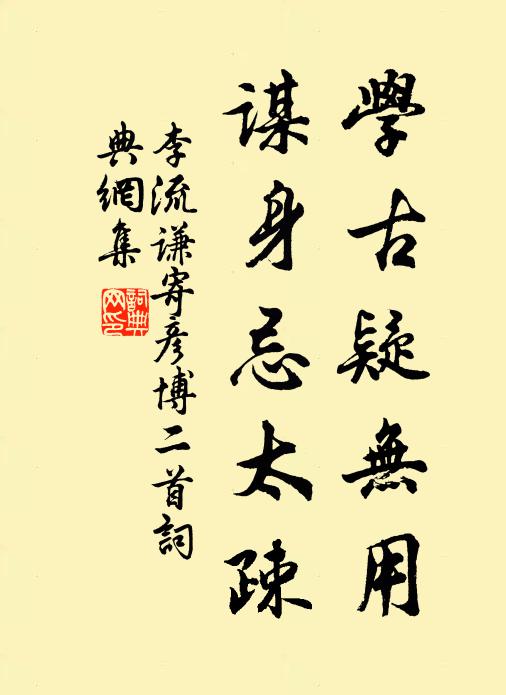 學古疑無用
謀身忌太疎
李流謙寄彥博二首詞
典網集
詞典網印